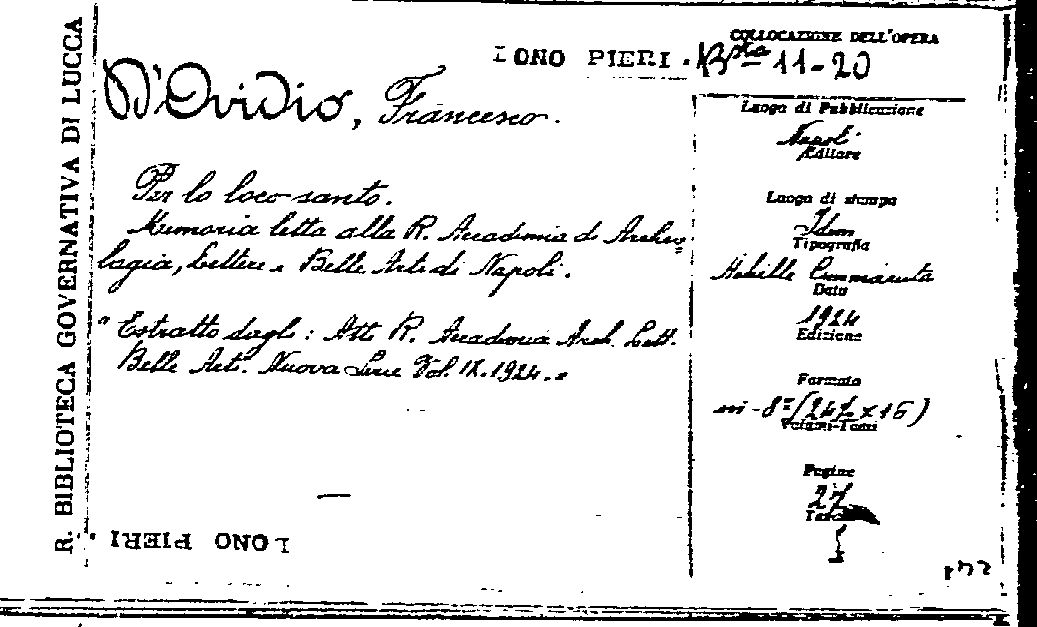 R. BIBLIOTECA GOVERNATIVA DI LUCCA
COLLOCAZIONE DELL'OPERA
DONO PIERI. Bta 11-20
D'Ovidio, Francesco.
Per lo loco santo.
Memoria letta alla R. Accademia di Archeo=
lagia, Lettere e Belle Arti di Napoli.
"Estratto dagli: Atti R. Accademia Arch. Lett.
Belle Arti. Nuova Serie Vol. IX. 1924."
Luogo di Pubblicazione
Napoli
Editore
Luogo di stampa
Idem
Tipografia
Achille Cimmaruta
Data
1924
Edizione
Formato
in-8º (24½ x 16)
Volumi-Tomi
Pagine
27
DONO PIERI